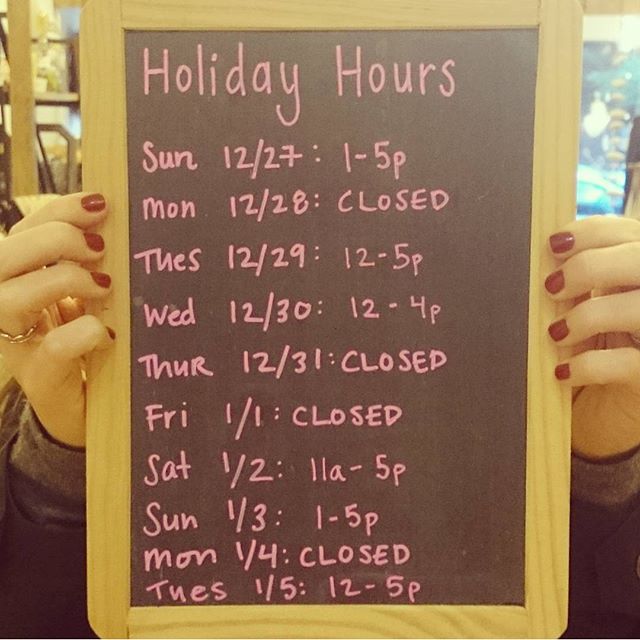 Holiday Hours
Sun 12/27: 1-5p
Mon 12/28: CLOSED
Tues 12/29: 12-5p
Wed 12/30: 12-4p
THUR 12/31: CLOSED
Fri 1/1: CLOSED
Sat 1/2: 11a-5p
Sun 1/3: 1-5p
Mon 1/4: CLOSED
Tues 1/5: 12-5p